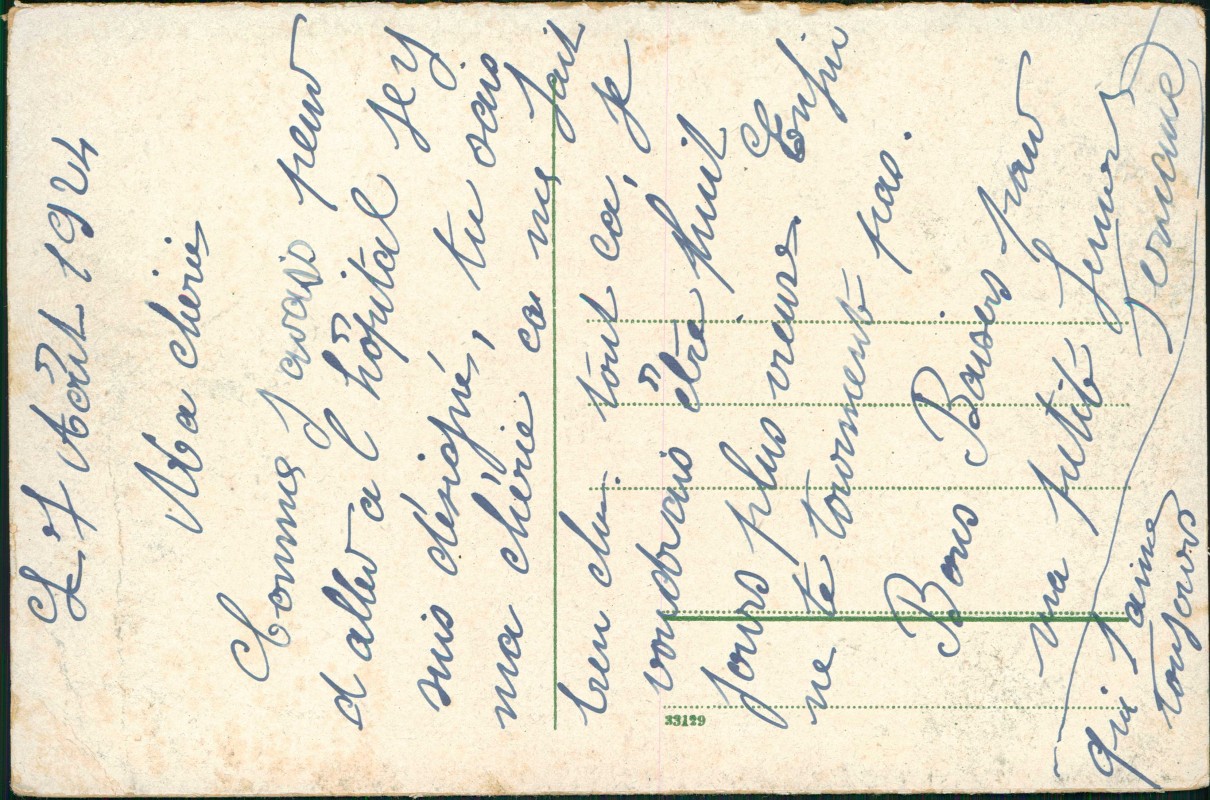 Le 7 Août 1924
Ma cherie
Comme J avais peur
d aller a l hôpital jey
suis désigné, tu sais
ma chérie ca me fait
bien tout ca, je
voudrais être huit
jours plus vieux. Enfin
ne te tourment pas.
Bons Baisers pour
ma petite
qui t'aime
toujours
33129